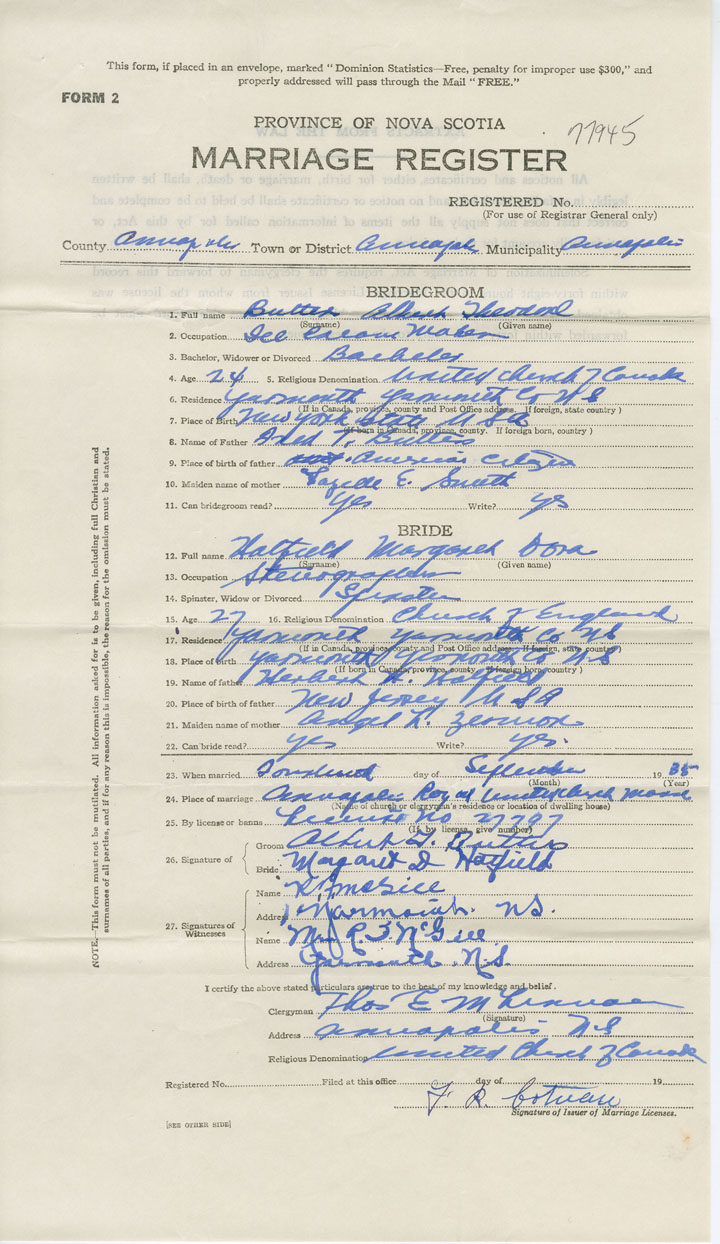 This form, if placed in an envelope, marked "Dominion Statistics—Free, penalty for improper use $300," and
properly addressed will pass through the Mail "FREE."
FORM 2
PROVINCE OF NOVA SCOTIA
77945
MARRIAGE REGISTER
REGISTERED No.
(For use of Registrar General only)
County Annapolis Town or District Annapolis Municipality Annapolis
BRIDEGROOM
1. Full name Butters Albert Theodore
(Surname) (Given name)
2. Occupation Ice Cream Maker
3. Bachelor, Widower or Divorced Bachelor
4. Age 24 5. Religious Denomination United Church of Canada
6. Residence Yarmouth Yarmouth Co N S
(If in Canada, province, county and Post Office address. If foreign, state country)
7. Place of Birth New York State U S A
(If born in Canada, province, county. If foreign born, country)
8. Name of Father T. Butters
9. Place of birth of father American Citizen
10. Maiden name of mother E. Smith
11. Can bridegroom read? Yes Write? Yes
BRIDE
12. Full name Hatfield Margaret Dora
(Surname) (Given name)
13. Occupation Stenographer
14. Spinster, Widow or Divorced Spinster
15. Age 27 16. Religious Denomination Church of England
17. Residence Yarmouth Yarmouth Co N S
(If in Canada, province, county and Post Office address. If foreign, state country)
18. Place of birth Yarmouth Yarmouth Co N S
(If born in Canada, province, county. If foreign born, country)
19. Name of father Herbert A. Hatfield
20. Place of birth of father New Jersey U S A
21. Maiden name of mother L.
22. Can bride read? Yes Write? Yes.
23. When married day of September 19 35
(Month) (Year)
24. Place of marriage Annapolis Royal United Church Manse
(Name of church or clergyman's residence or location of dwelling house)
25. By license or banns License No 27797
(If by license, give number)
26. Signature of
Groom Albert T. Butters
Bride Margaret D Hatfield
27. Signatures of Witnesses
Name McGill
Address Yarmouth. N.S.
Name Mrs R. McGill
Address Yarmouth. N.S.
I certify the above stated particulars are true to the best of my knowledge and belief.
Clergyman Thos E
(Signature)
Address Annapolis N S
Religious Denomination United Church of Canada
Registered No. Filed at this office day of 19
F. R.
Signature of Issuer of Marriage Licenses.
[SEE OTHER SIDE]
NOTE.—This form must not be mutilated. All information asked for is to be given, including full Christian and
surnames of all parties, and if for any reason this is impossible, the reason for the omission must be stated.